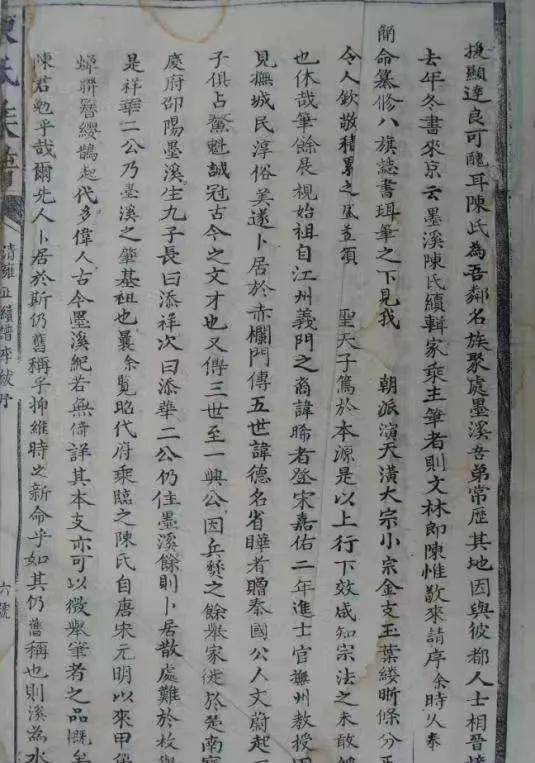 援顯達良可醜耳陳氏為吾鄰名族聚處墨溪吾弟常歷其地因與彼都人士相晉接
去年冬書來京云墨溪陳氏續輯家乘主筆者則文林郎陳惟敬來請序余時久奉
簡命纂修八旗誌書珥筆之下見我 朝派演天潢大宗小宗金支玉葉縷晰條分
令人欽敬積累之 聖天子篤於本源是以上行下效咸知宗法之未敢
也休哉筆餘展視始祖自江州義門之裔諱晞者登宋嘉佑二年進士官撫州教授因
見撫城民淳俗美遂卜居於赤欄門傳五世諱德名省曄者贈秦國公人文蔚起
子俱占鰲魁誠冠古今之文才也又傳三世至一興公因兵燹之餘舉家徙於楚南寶
慶府邵陽墨溪生九子長曰添祥次曰添華二公仍住墨溪餘則卜居散處難於枚舉
是祥華二公乃墨溪之肇基祖也曩余覽昭代府乘臨之陳氏自唐宋元明以來甲
蟬聯簪纓鵲起代多偉人古今墨溪紀若無倚詳其本支亦可以概舉筆者之品概矣
陳君勉乎哉爾先人卜居於斯仍舊稱乎抑維時之新命乎如其仍舊稱也則溪為水
陳氏族譜
清雍正續譜序
六號